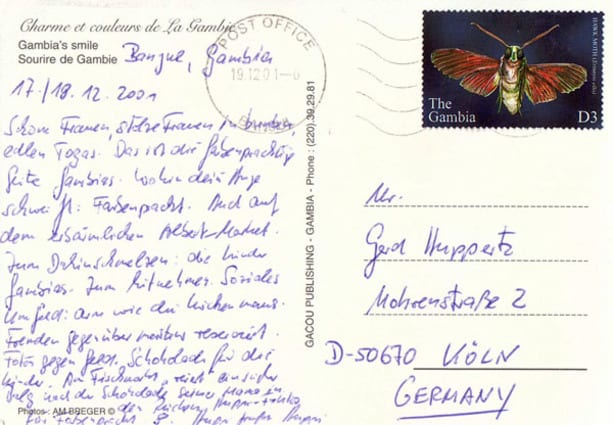 Charme et couleurs de La Gambie
Gambia's smile
Sourire de Gambie
Banjul, Gambia
17./18.12.2001
Schöne Frauen, stolze Frauen in bunten
edlen Togas. Das ist die farbenprächtige
Seite Gambias. Wohin dein Auge
schweift: Farbenpracht. Auch auf
dem erbärmlichen Albert-Market.
Zum Dahinschmelzen: die Kinder
Gambias. Zum Mitnehmen. Soziales
Umfeld: arm wie die Kirchenmaus.
Fremden gegenüber meistens reserviert.
Fotos gegen Geld. Schokolade für die
Kinder. Am Fischmarkt
nach der Schokolade seiner Mama
Photos: AM BREGER ©
POST OFFICE
19.12.01
BANJUL
GACOU PUBLISHING - GAMBIA - Phone : (220) 39.29.81
HAWK MOTH
The
Gambia
D3
Mr.
Gerd Huppertz
Mohrenstraße 2
D-50670 KÖLN
GERMANY